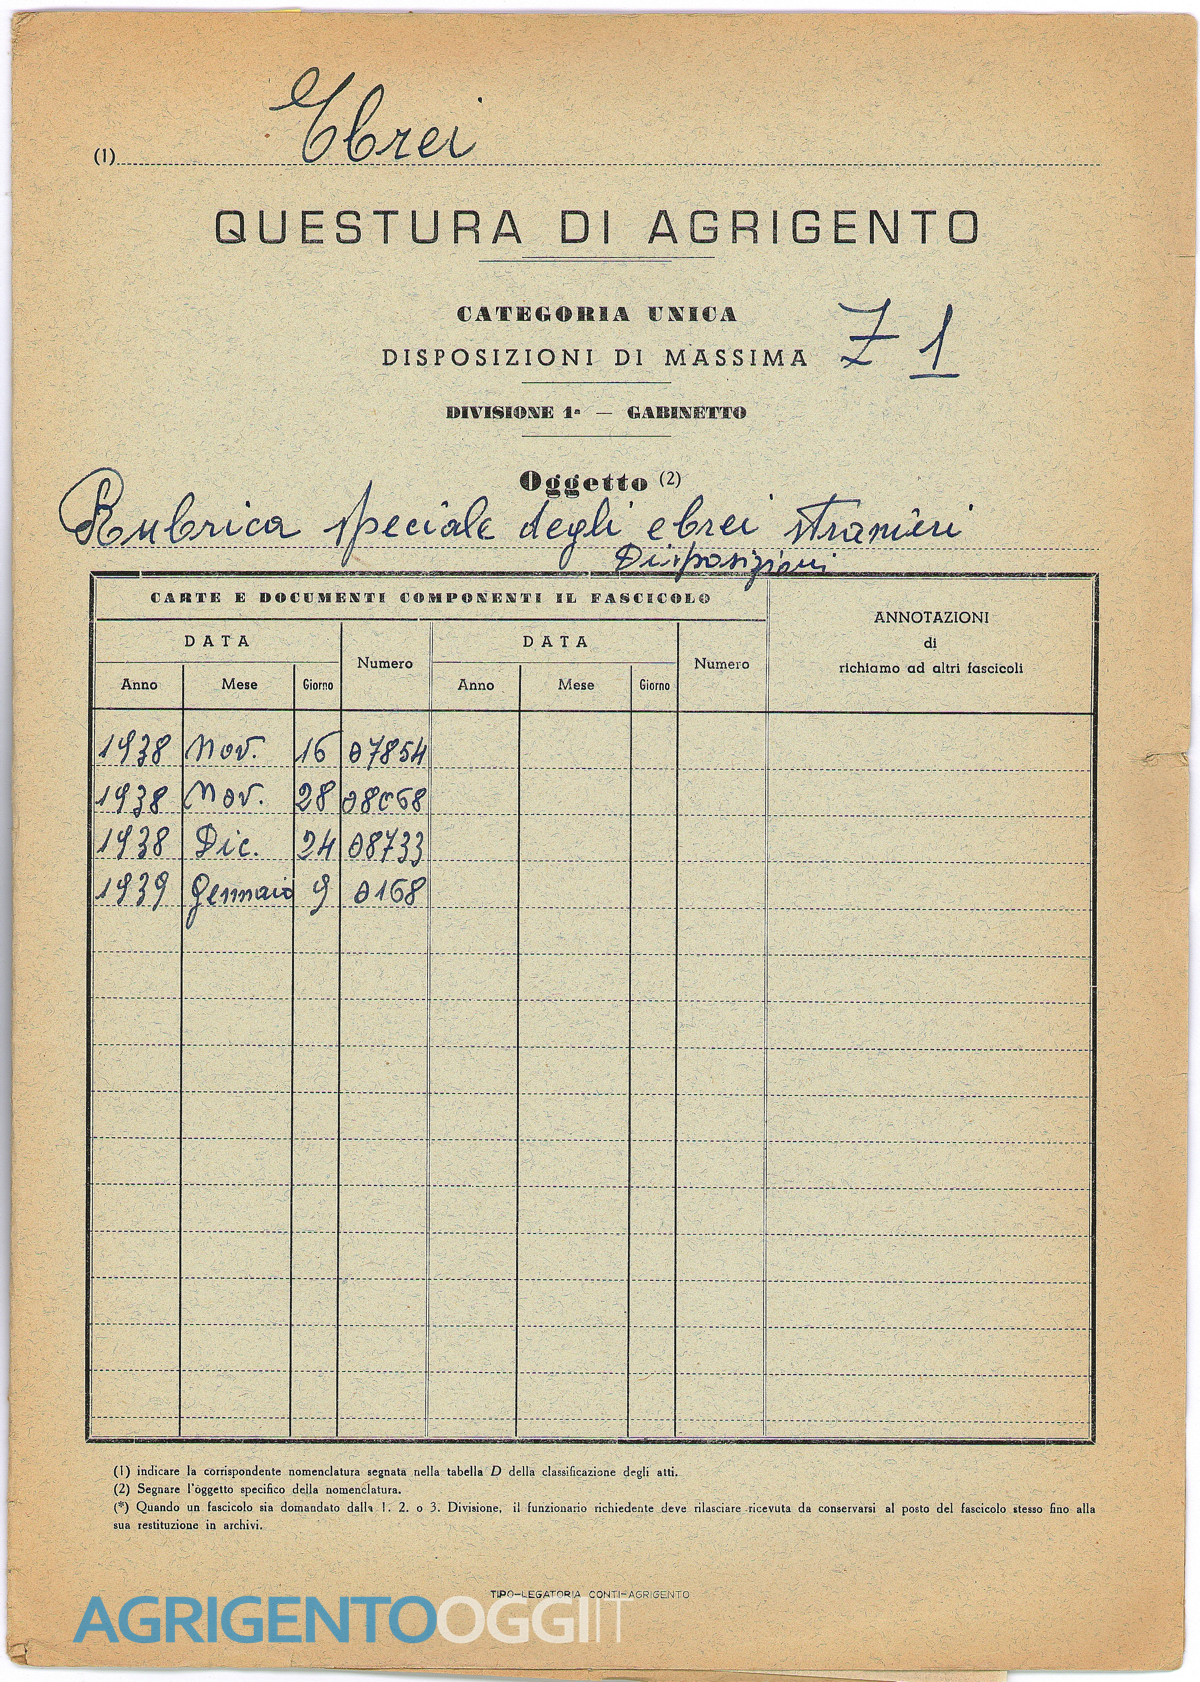 Ebrei
(1)
QUESTURA DI AGRIGENTO
CATEGORIA UNICA
DISPOSIZIONI DI MASSIMA Z 1
DIVISIONE 1ª — GABINETTO
Oggetto (2)
Rubrica speciale degli ebrei stranieri
Disposizioni
CARTE E DOCUMENTI COMPONENTI IL FASCICOLO
ANNOTAZIONI
di
richiamo ad altri fascicoli
DATA Numero DATA Numero
Anno Mese Giorno Anno Mese Giorno
1938 Nov. 16 07854
1938 Nov. 28 08068
1938 Dic. 24 08733
1939 Gennaio 9 0168
(1) indicare la corrispondente nomenclatura segnata nella tabella D della classificazione degli atti.
(2) Segnare l'oggetto specifico della nomenclatura.
(*) Quando un fascicolo sia domandato dalla 1. 2. o 3. Divisione, il funzionario richiedente deve rilasciare ricevuta da conservarsi al posto del fascicolo stesso fino alla
sua restituzione in archivi.
TIPO-LEGATORIA CONTI-AGRIGENTO
AGRIGENTOOGGI.IT